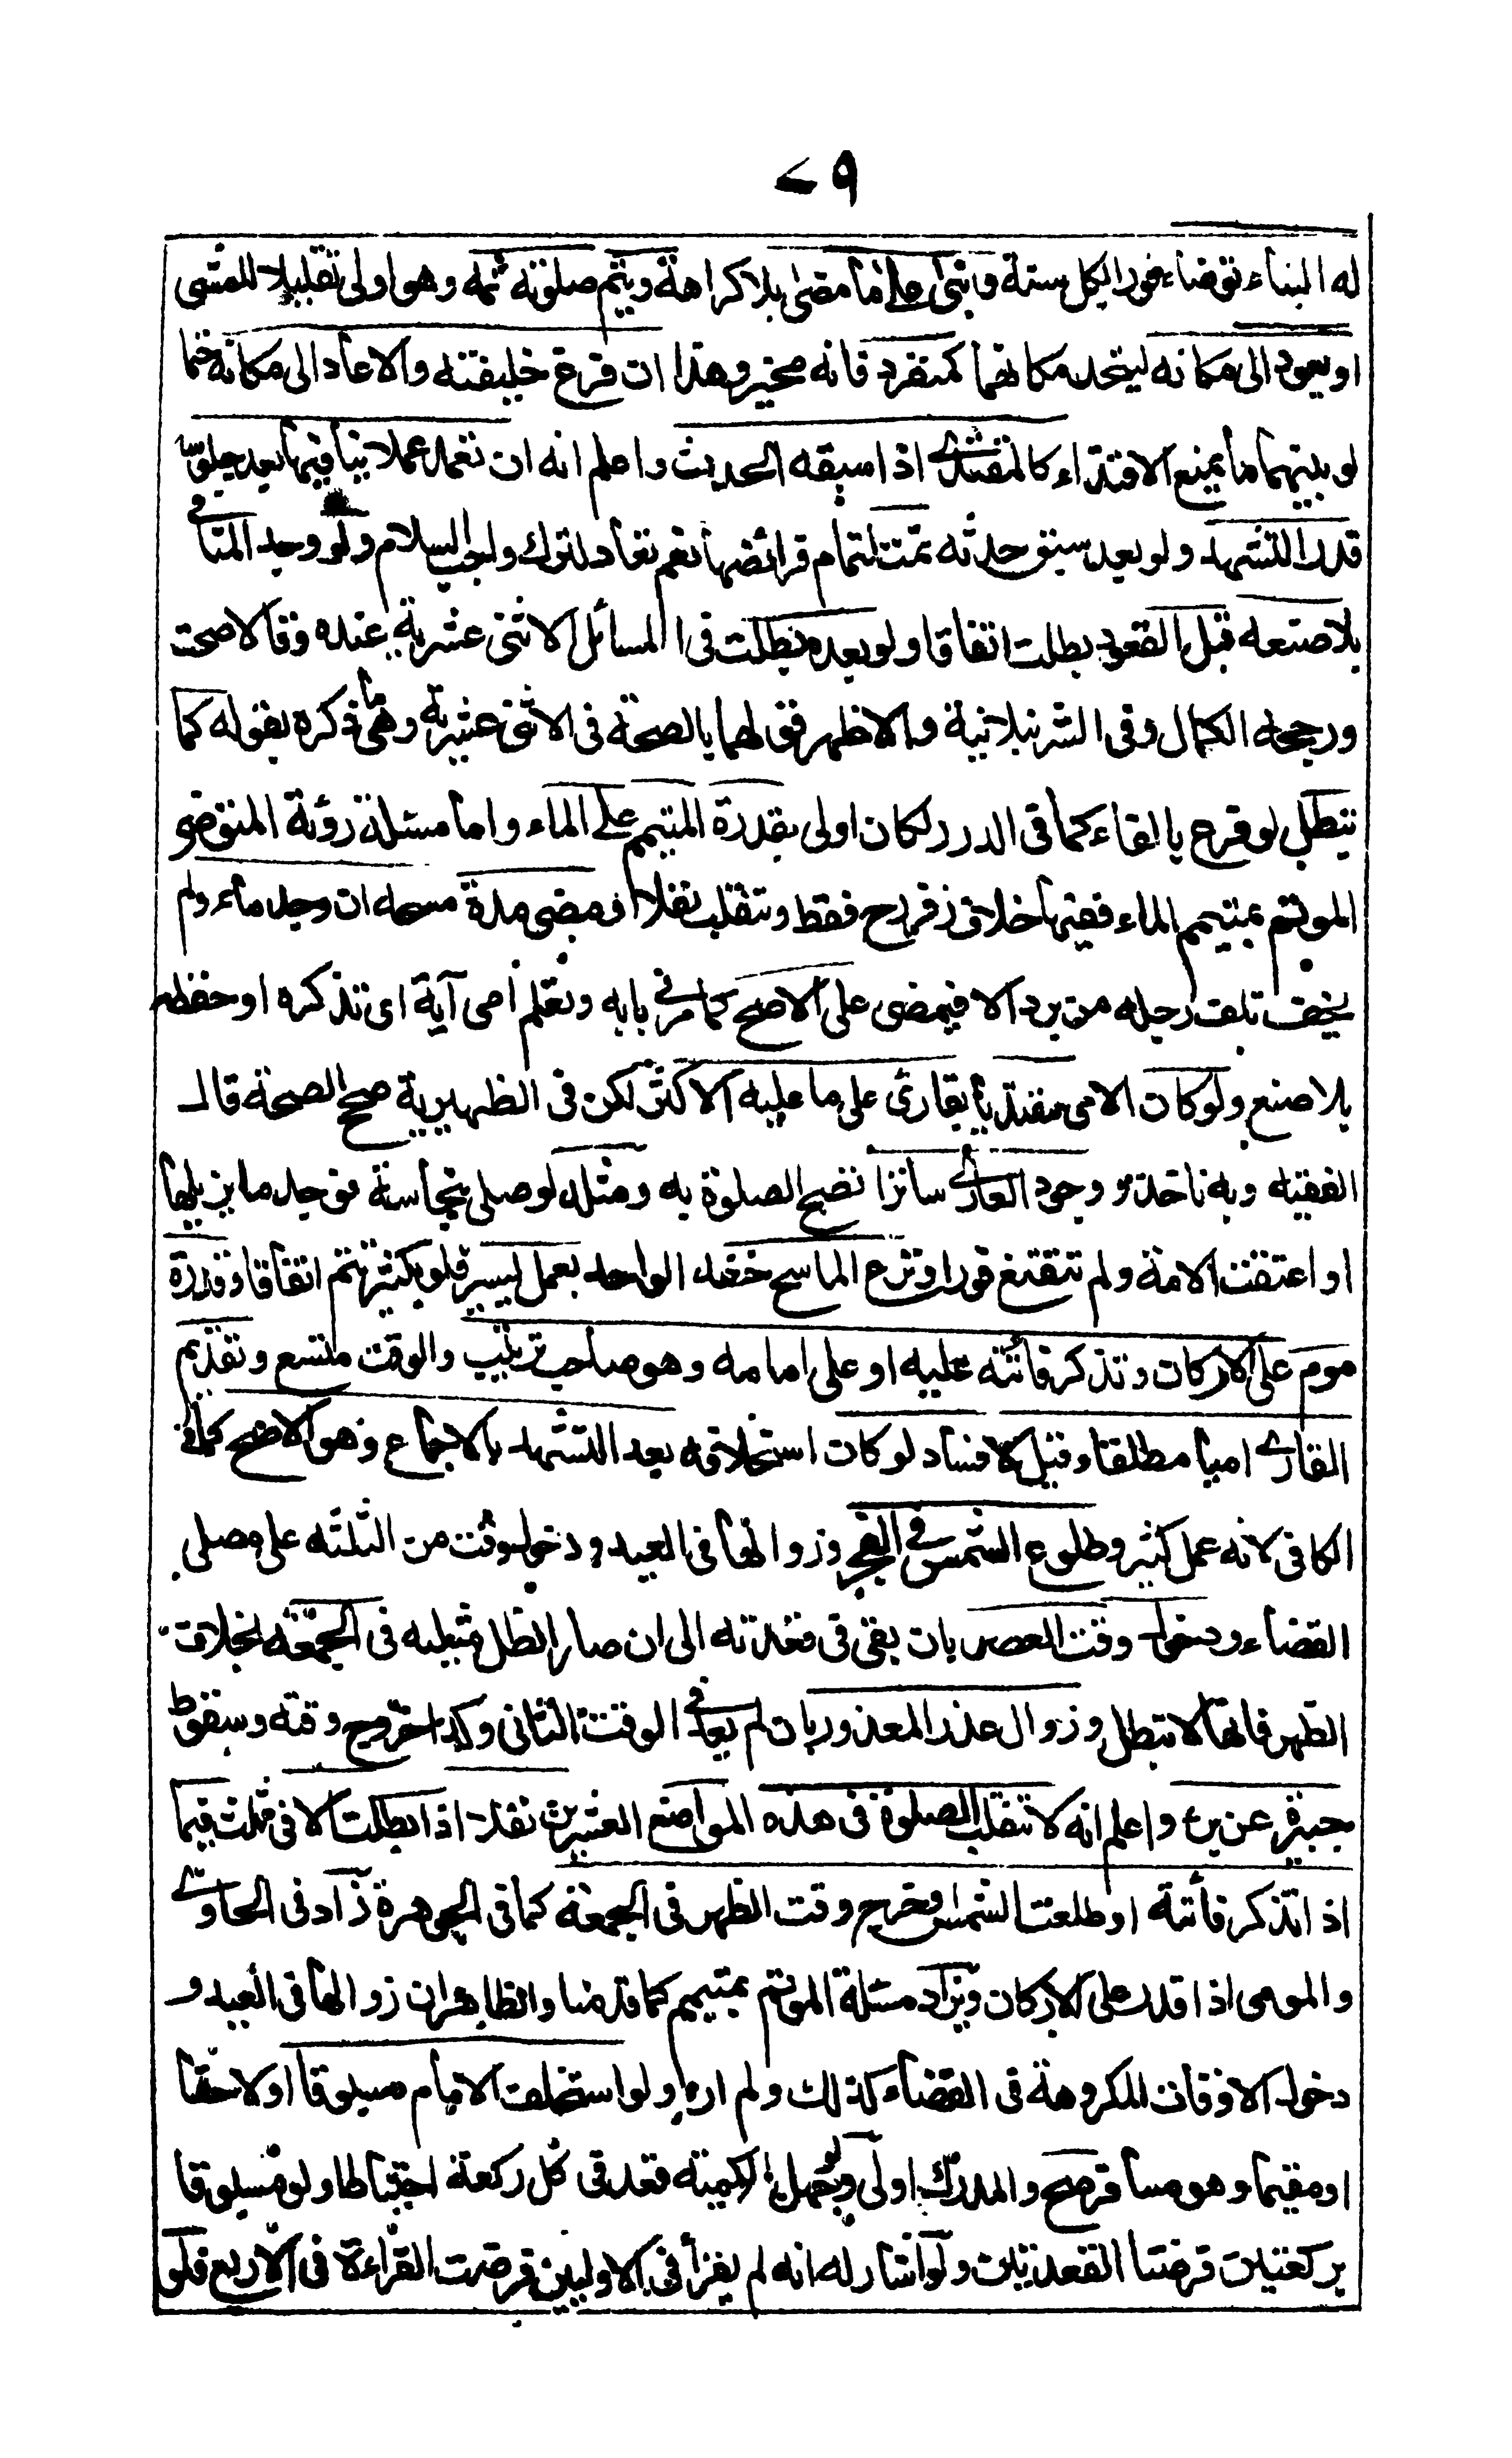 ٧٩
له البناء توضاء فورا بكل سنة وبنى على ما مضى بلا كراهة ويتم صلوته ثمه وهو اولى تقليلا للمشى
او يعود الى مكانه ليتحد مكانهما كمنفرد فانه مخير وهذا ان فرغ خليفته والا عاد الى مكانه حتما
لو بينهما ما يمنع الاقتداء كالمقتدى اذا سبقه الحديث واعلم انه ان تعمد عملا ينافيها بعد جلوسه
قدر التشهد ولو بعد سبق حدثه تمت لتمام فرائضها نعم تعاد لترك واجب السلام ولو وجد المنافى
بلا صنعه قبل القعود بطلت اتفاقا ولو بعده بطلت فى المسائل الاثنى عشرية عنده وقالا صحت
ورجحه الكمال وفى الشرنبلانية والاظهر قولهما بالصحة فى الاثنى عشرية وهى ما ذكره بقوله كما
تبطل لو فرع بالفاء كما فى الدرر لكان اولى بقدرة المتيمم على الماء واما مسئلة رؤية المتوضى
الموتم بمتيمم الماء ففيها خلاف زفر رح فقط وتنقلب نفلا ومضى مدة مسحه ان وجد ماء ولم
يخف تلف رجله من برد الا فيمضى على الاصح كما مر فى بابه وتعلم امى آية اى تذكره او حفظه
بلا صنع ولو كان الامى مقتد يا بقارى على ما عليه الاكثر لكن فى الظهيرية صحح الصحة قال
الفقيه وبه ناخذ ووجود العارى ساترا تصح الصلوة به ومثله لو صلى بنجاسة فوجد ما يزيلها
او اعتقت الامة ولم تتقنع فورا ونزع الماسح خفه الواحد بعمل يسير فلو بكثير تتم اتفاقا وقدرة
موم على الاركان وتذكر فائتة عليه او على امامه وهو صاحب ترتيب والوقت متسع وتقديم
القارى اميا مطلقا وقيل لا فساد لو كان استخلافه بعد التشهد بالاجماع وهو الاصح كما فى
الكافى لانه عمل كثير وطلوع الشمس فى الفجر وزوالها فى العيد ودخول وقت من الثلثه على مصلى
القضاء ودخول وقت العصر بان بقى فى قعدته الى ان صار الظل مثليه فى الجمعة بخلاف
الظهر فانها لا تبطل وزوال عذر المعذور بان لم يعد فى الوقت الثانى وكذا خروج وقته وسقوط
جبيرة عن برء واعلم انه لا تنقلب الصلوة فى هذه المواضع العشرين نفلا اذا بطلت الا فى ثلث فيما
اذا تذكر فائتة او طلعت الشمس او خرج وقت الظهر فى الجمعة كما فى الجوهرة زاد فى الحاوى
والمومى اذا قدر على الاركان ويزاد مسئلة الموتم بمتيمم كما قدمنا والظاهر ان زوالها فى العيد و
دخول الاوقات المكروهة فى القضاء كذلك ولم اره ولو استخلف الامام مسبوقا او لاحقا
او مقيما وهو مسافر صح والمدرك اولى ولو جهل الكمية قعد فى كل ركعة احتياطا ولو مسبوقا
بركعتين فرضتا القعدتين ولو اشار له انه لم يقرأ فى الاوليين فرضت القراءة فى الاربع فلو